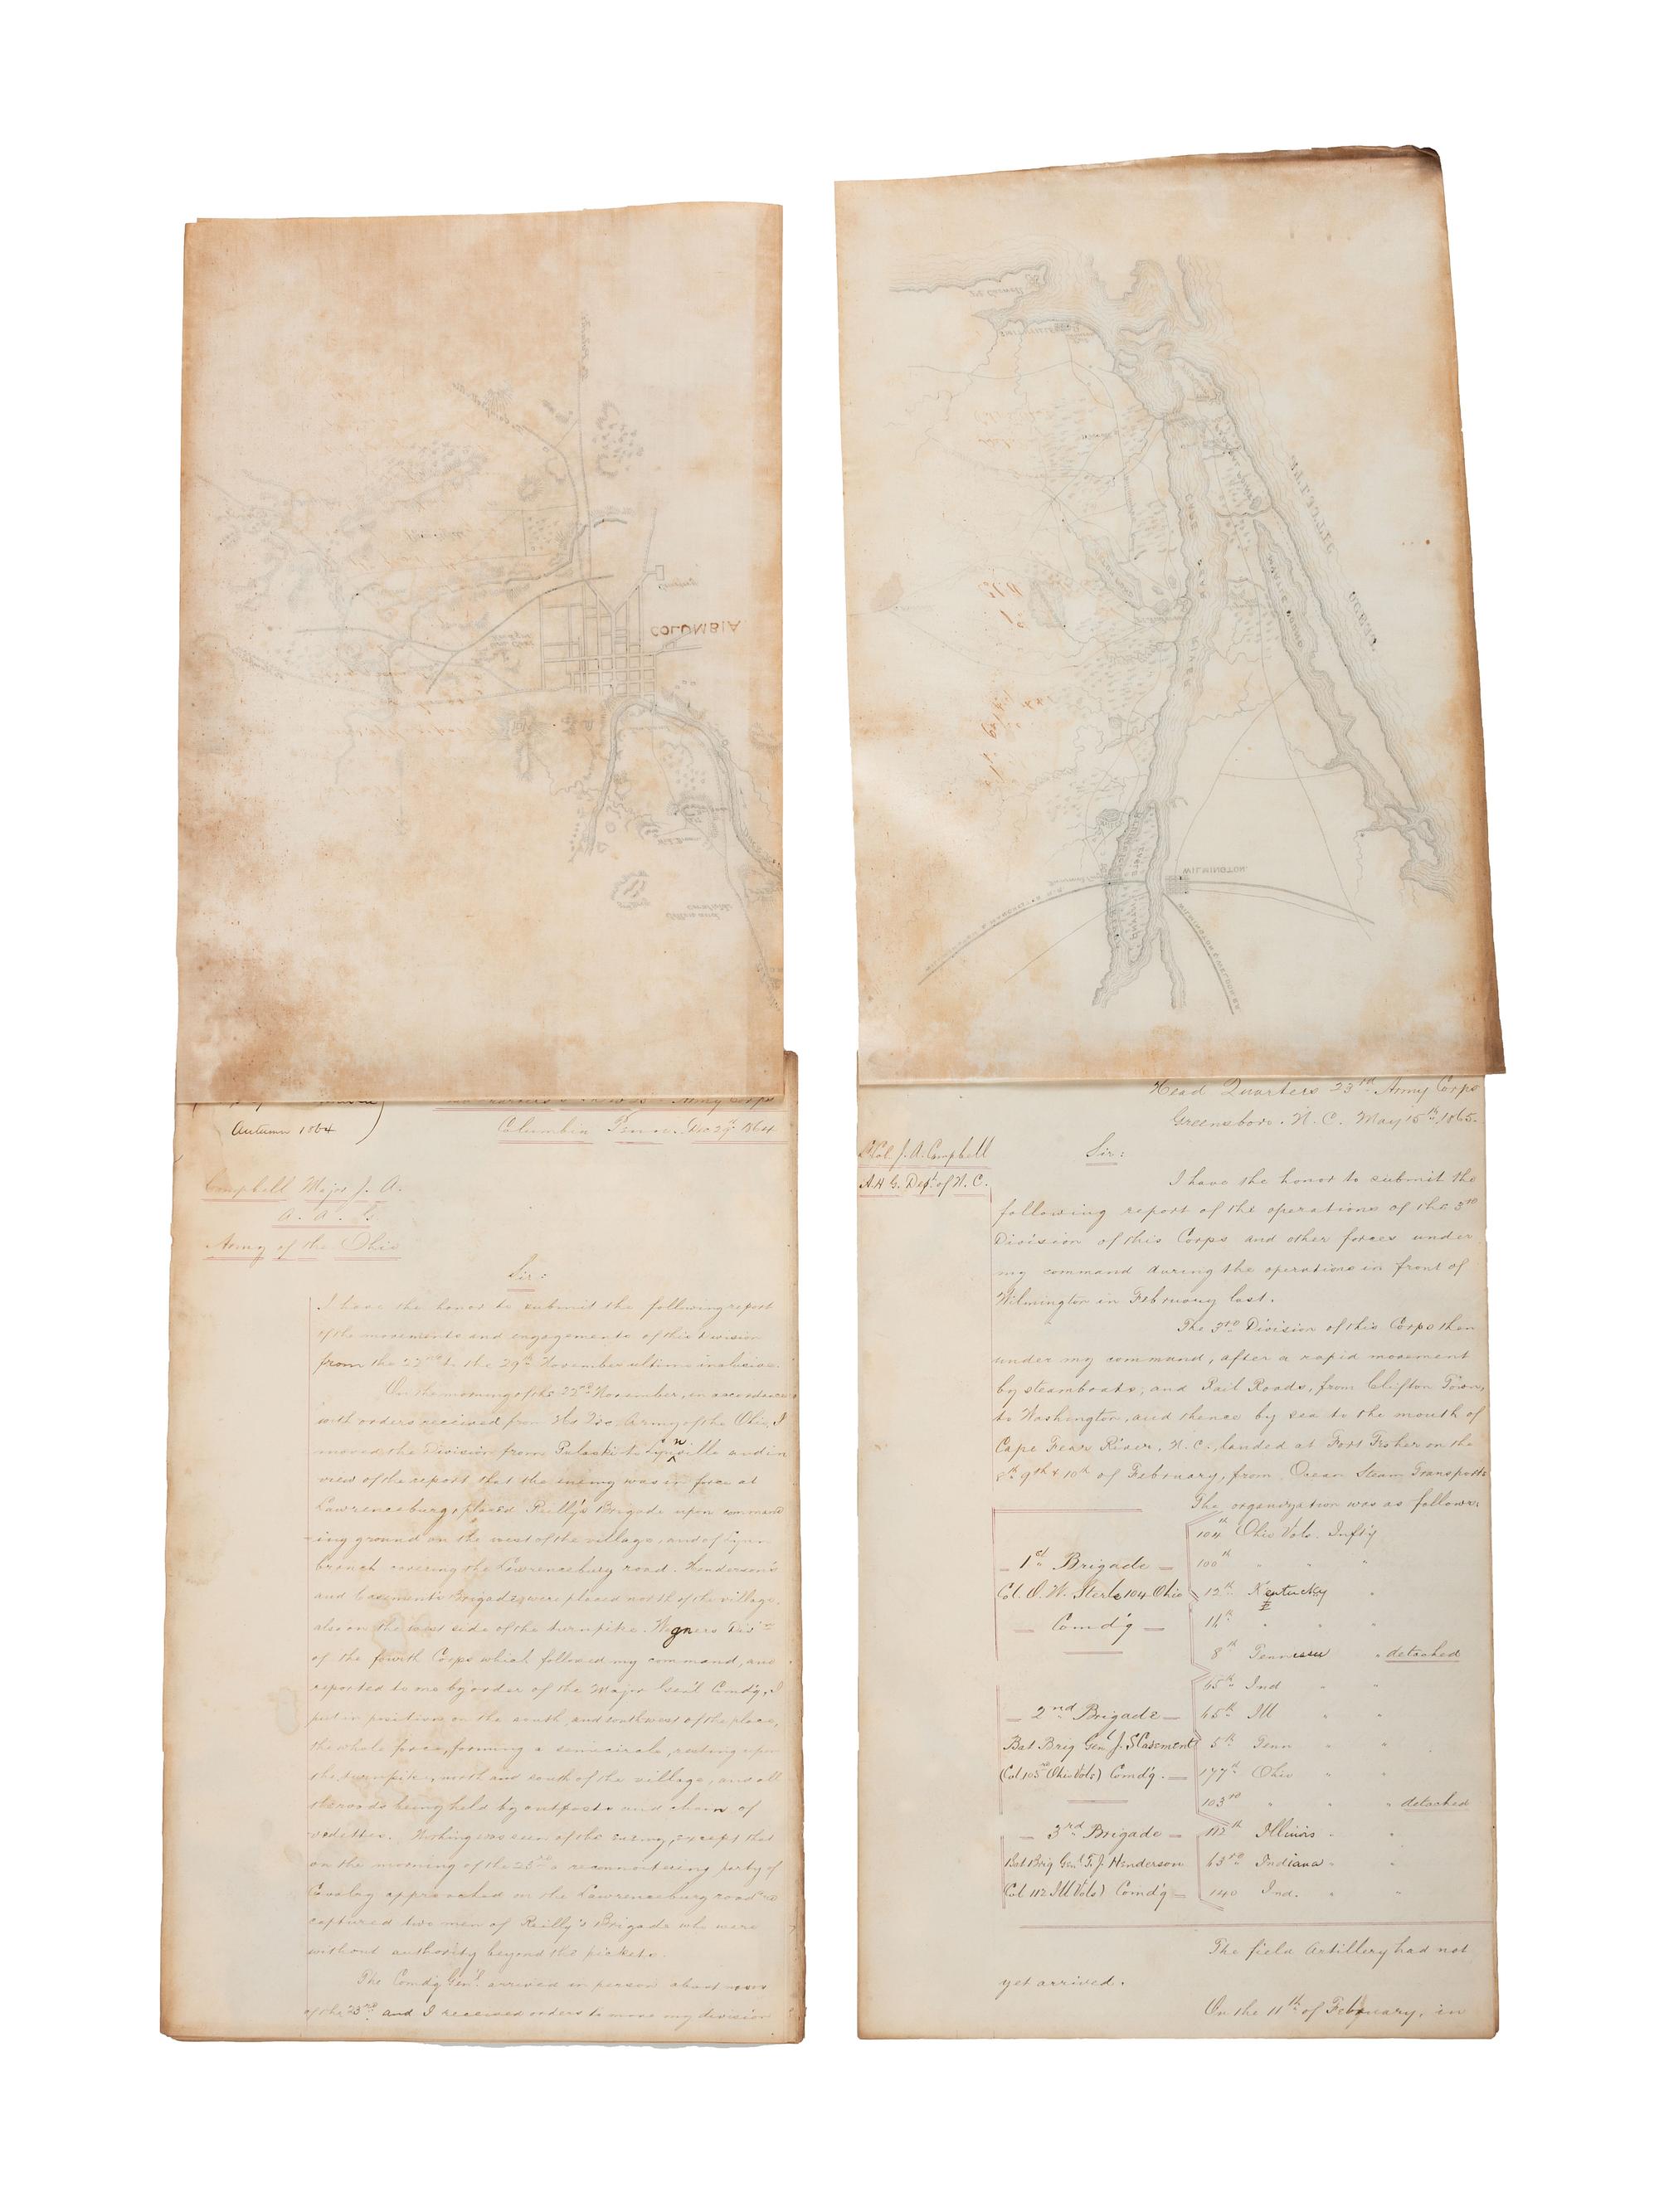 COLUMBIA
Autumn 1864
Columbia Tenn. Dec 29th 1864
Campbell Major J. A.
A. A. G.
Army of the Ohio
Sir:
I have the honor to submit the following report
of the movements and engagements of this Division
from the 22nd to the 29th November ultimo inclusive.
On the morning of the 22nd November, in accordance
with orders received from Hd Qrs Army of the Ohio, I
moved the Division from Pulaski to Lynnville and in
view of the report that the enemy was in force at
Lawrenceburg, placed Reilly's Brigade upon command
ing ground on the west of the village, and of Lynn
branch covering the Lawrenceburg road. Henderson's
and Casements Brigades were placed north of the village,
also on the west side of the turnpike. Wagners Divn
of the fourth Corps which followed my command, and
reported to me by order of the Major Genl Comdg, I
put in position on the south, and southwest of the place,
the whole force, forming a semicircle, resting upon
the turnpike, north and south of the village, and all
the roads being held by outposts and chain of
vedettes. Nothing was seen of the enemy, except that
on the morning of the 23rd a reconnoitering party of
Cavalry approached on the Lawrenceburg road and
captured two men of Reilly's Brigade who were
without authority beyond the pickets.
The Comdg Genl. arrived in person about noon
of the 23rd and I received orders to move my division
WILMINGTON
Head Quarters 23rd Army Corps
Greensboro. N. C. May 15th 1865.
Lt Col. J. A. Campbell
A. A. G. Dept of N. C.
Sir:
I have the honor to submit the
following report of the operations of the 3rd
Division of this Corps and other forces under
my command during the operations in front of
Wilmington in February last.
The 3rd Division of this Corps then
under my command, after a rapid movement
by steamboats, and Rail Roads, from Clifton Tenn,
to Washington, and thence by sea to the mouth of
Cape Fear River, N. C., landed at Fort Fisher on the
8th 9th & 10th of February, from Ocean Steam Transports
The organization was as follows:
104th Ohio Vols. Infty
1st Brigade 100th " " "
Col. O. W. Sterl 104 Ohio 12th Kentucky "
Comd'g 16th " " "
8th Tennessee " detached
65th Ind " "
2nd Brigade 65th Ill " "
Bvt Brig Genl J. S Casement 5th Tenn " "
(Col 103rd Ohio Vols) Comd'g. 177th Ohio " "
103rd " " " detached
3rd Brigade 112th Illinois " "
Bvt Brig Genl T. J. Henderson 63rd Indiana " "
(Col 112 Ill Vols) Comd'g 140 Ind. " "
The field Artillery had not
yet arrived.
On the 11th of February, in